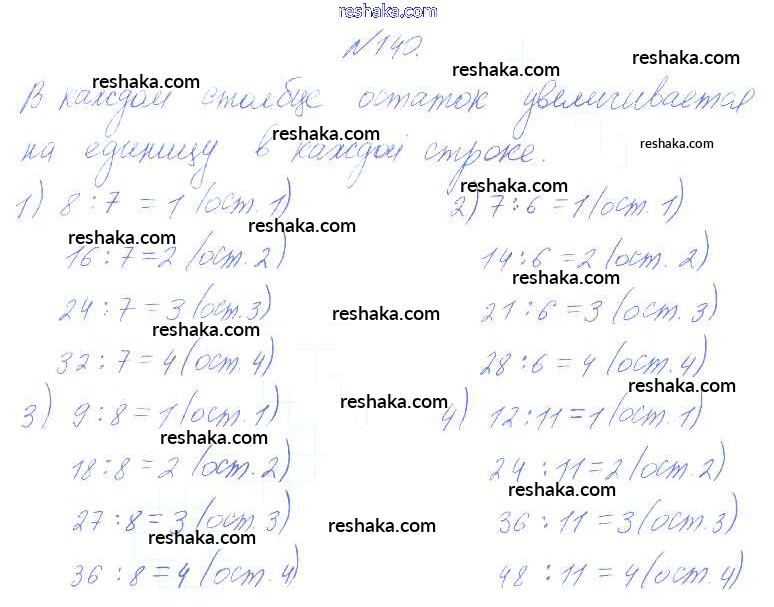 reshaka.com
№140.
reshaka.com
reshaka.com
reshaka.com
В каждом столбце остаток увеличивается
reshaka.com
reshaka.com
на единицу в каждой строке.
reshaka.com
1) 8 : 7 = 1 (ост. 1)
2) 7 : 6 = 1 (ост. 1)
reshaka.com
reshaka.com
16 : 7 = 2 (ост. 2)
14 : 6 = 2 (ост. 2)
reshaka.com
24 : 7 = 3 (ост. 3)
21 : 6 = 3 (ост. 3)
reshaka.com
reshaka.com
32 : 7 = 4 (ост. 4)
28 : 6 = 4 (ост. 4)
reshaka.com
reshaka.com
3) 9 : 8 = 1 (ост. 1)
4) 12 : 11 = 1 (ост. 1)
reshaka.com
18 : 8 = 2 (ост. 2)
24 : 11 = 2 (ост. 2)
reshaka.com
27 : 8 = 3 (ост. 3)
36 : 11 = 3 (ост. 3)
reshaka.com
reshaka.com
36 : 8 = 4 (ост. 4)
48 : 11 = 4 (ост. 4)